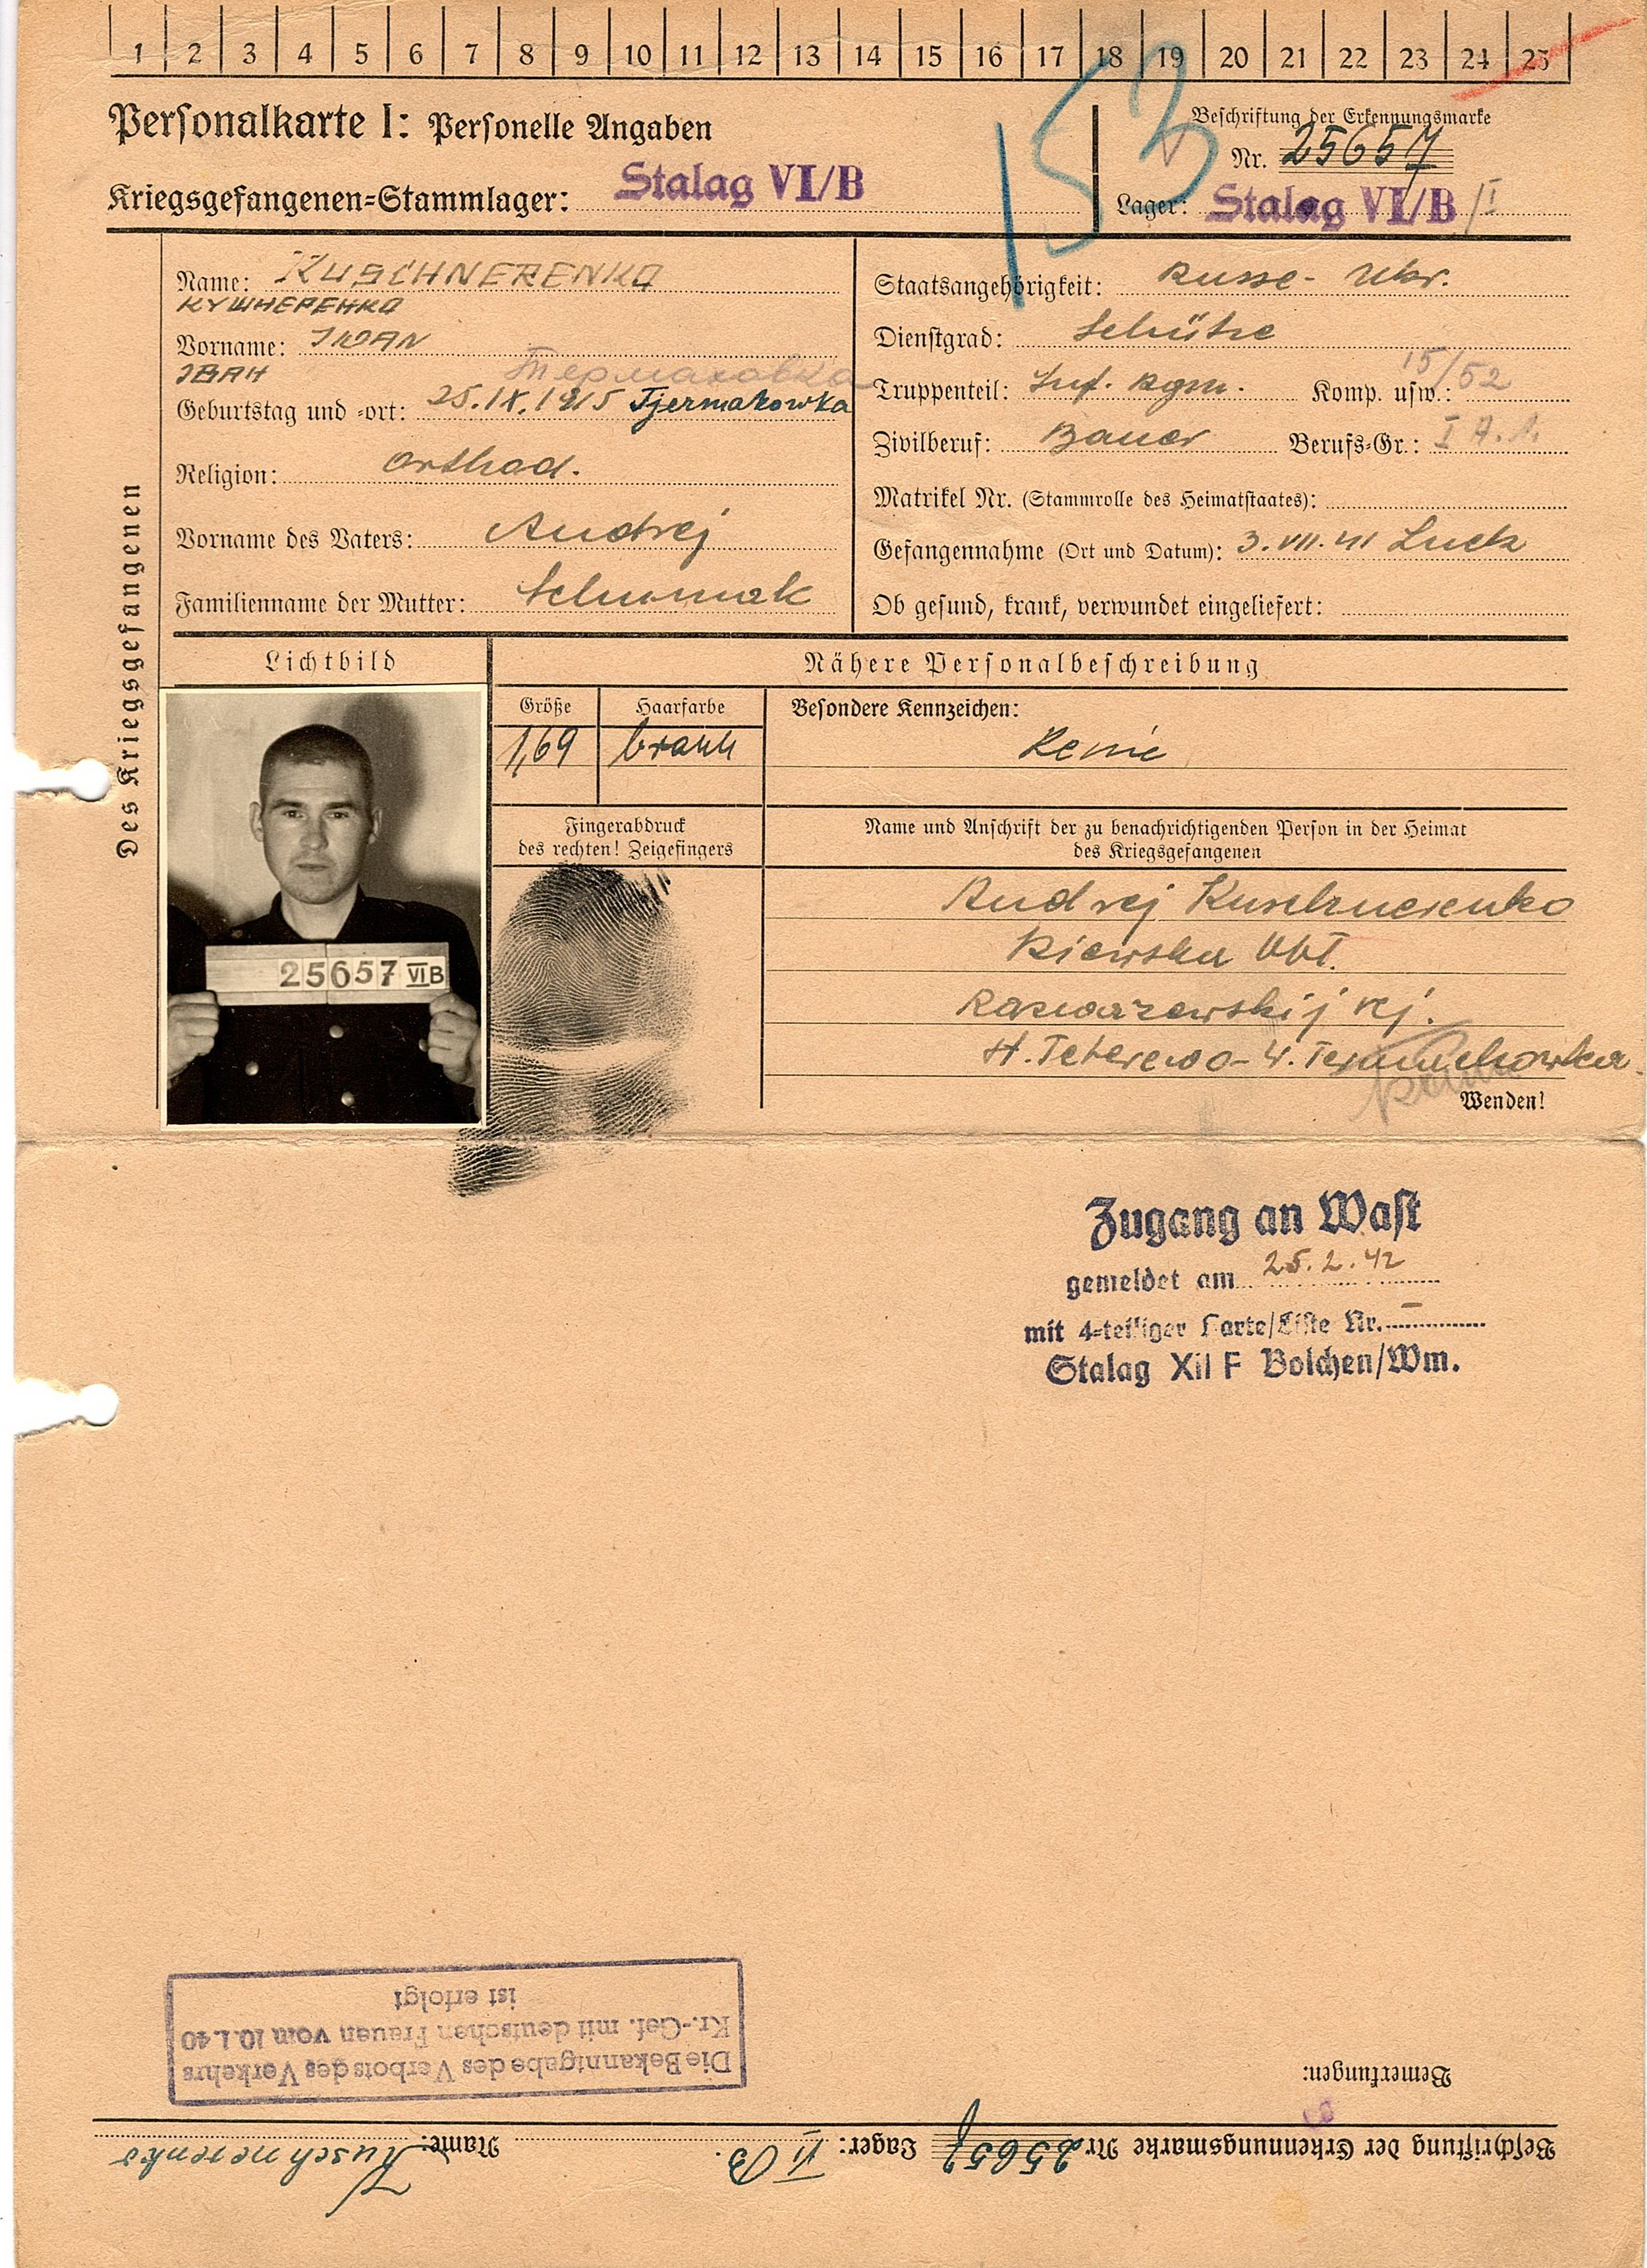 1 2 3 4 5 6 7 8 9 10 11 12 13 14 15 16 17 18 19 20 21 22 23 24 25
153
Personalkarte I: Personelle Angaben
Beschriftung der Erkennungsmarke
Nr. 25657
Kriegsgefangenen-Stammlager: Stalag VI/B
Lager: Stalag VI/B/I
Des Kriegsgefangenen
Name: KUSCHNERENKO
КУШНЕРЕНКО
Vorname: IWAN
ІВАН
Термаховка
Geburtstag und -ort: 25.IX.1915 Tjermakowka
Religion: orthod.
Vorname des Vaters: Andrej
Familienname der Mutter:
Staatsangehörigkeit: Russe - Ukr.
Dienstgrad: Schütze
Truppenteil: Inf. Rgm. Komp. usw.: 15/52
Zivilberuf: Bauer Berufs-Gr.: I A.1.
Matrikel Nr. (Stammrolle des Heimatstaates):
Gefangennahme (Ort und Datum): 3.VII.41 Luck
Ob gesund, krank, verwundet eingeliefert:
Lichtbild
Nähere Personalbeschreibung
Größe Haarfarbe Besondere Kennzeichen:
1,69 braun Keine
Fingerabdruck
des rechten! Zeigefingers
Name und Anschrift der zu benachrichtigenden Person in der Heimat
des Kriegsgefangenen
Andrej Kuschnerenko
Kiewska Obl.
Raswazewskij rj.
25657 VI B
Wenden!
Zugang an Wast
gemeldet am 25.2.42
mit 4-teiliger Karte/Liste Nr. –
Stalag XII F Bolchen/Wm.
Beschriftung der Erkennungsmarke Nr 25657 Lager: VI B. Name: Kuschnerenko
Bemerkungen:
Die Bekanntgabe des Verbots des Verkehrs
Kr.-Gef. mit deutschen Frauen vom 10.1.40
ist erfolgt